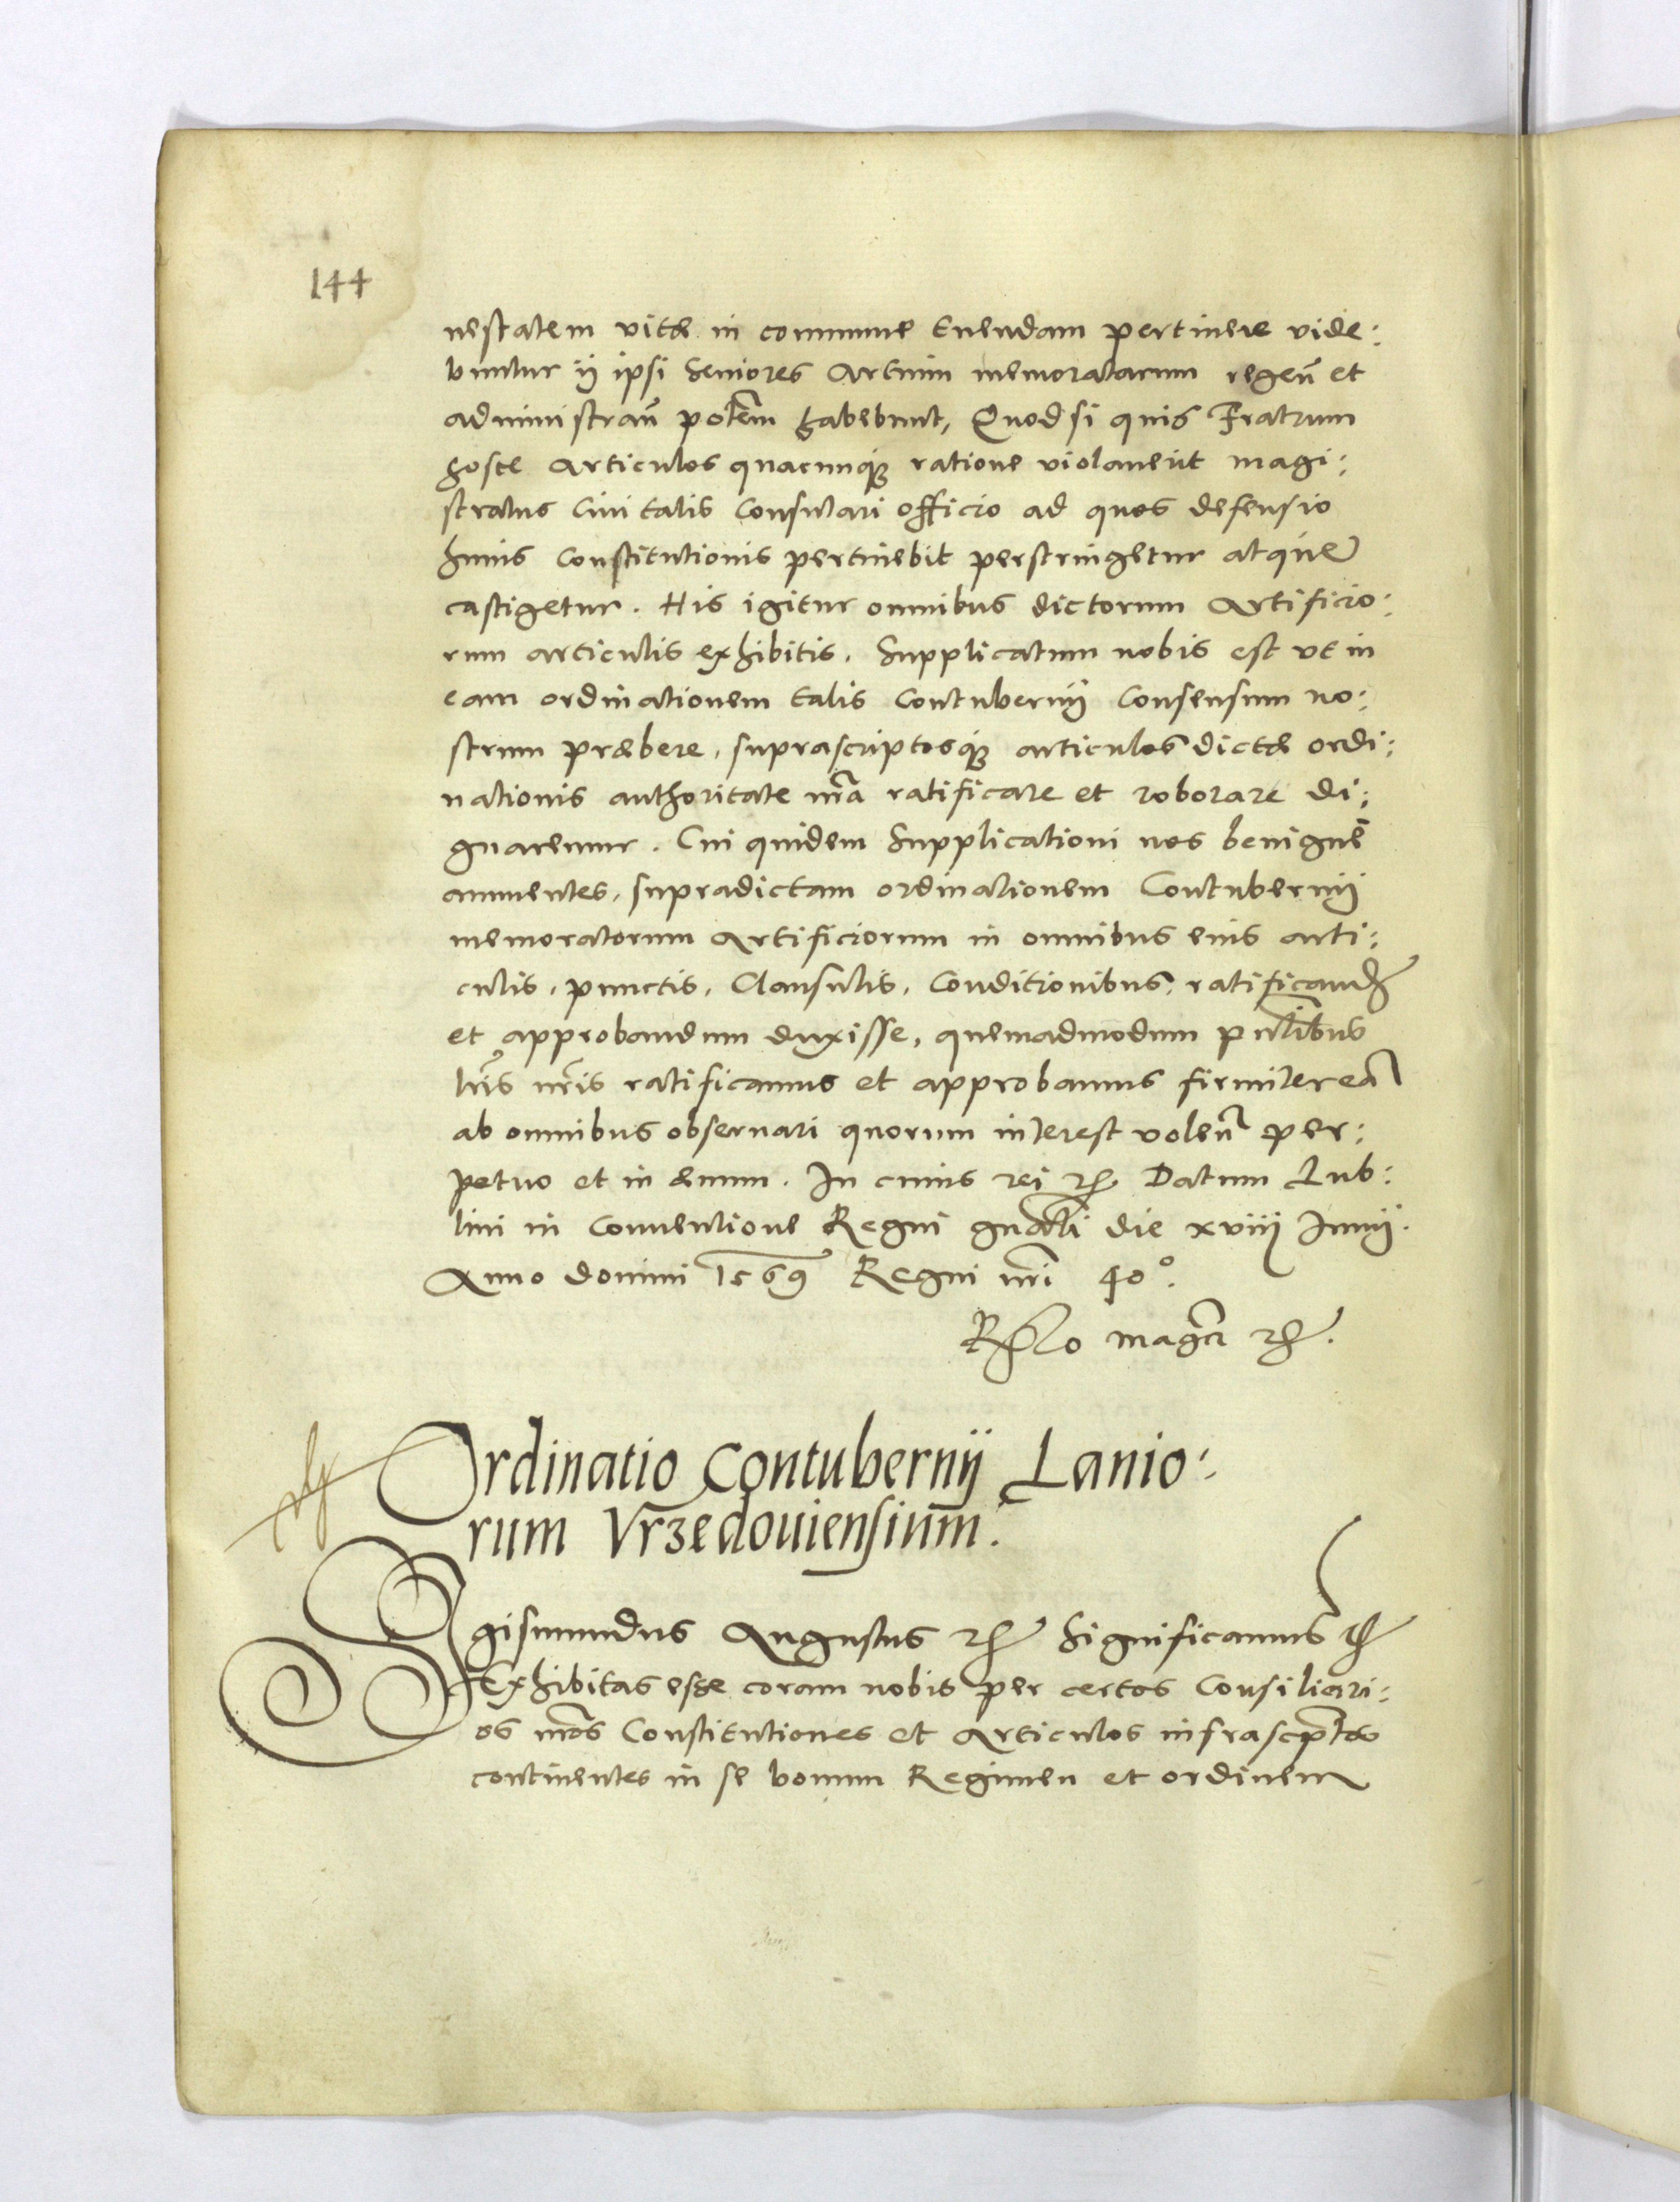 144
nestatem vitæ in commune tuendam pertinere vide:
buntur ij ipsi Seniores Artium memoratarum regeñ et
administrañ potem̃ habebunt, Quod si quis Fratrum
hosce Articulos quacunqȝ ratione violaueut magi:
stratus Ciuitatis Consulari officio ad quos defensio
huius Constitutionis pertinebit perstringetur atque
castigetur. His igitur omnibus dictorum Artificio:
rum articulis exhibitis. Supplicatum nobis est vt in
eam ordinationem talis Contubernij Consensum no:
strum præbere, suprascriptosqȝ articulos dictæ ordi:
nationis authoritate nr̃a ratificare et roborare di:
gnaremur. Cui quidem Supplicationi nos benignè
annuentes, supradictam ordinationem Contubernij
memoratorum Artificiorum in omnibus eius arti:
culis, punctis, Clausulis, Conditionibus, ratificand
et approbandum duxisse, quemadmodum pñtibus
lr̃is nr̃is ratificamus et approbamus firmiter eã
ab omnibus obseruari quorum interest voleñ per:
petuo et in æuum. In cuius rei etc. Datum Lub:
lini in Conuentione Regni gnãli die xviij Junij.
Anno domini 1569 Regni nr̃i 40°.
Rẽlo mag̃ci etc.
Ordinatio Contubernij Lanio:
rum Vrzedouiensium.
Sigismundus Augustus etc. Significamus etc.
Exhibitas esse coram nobis per certos Consiliari:
os nr̃os Constitutiones et Articulos infrascp̃tos
continentes in se bonum Regimen et ordinem